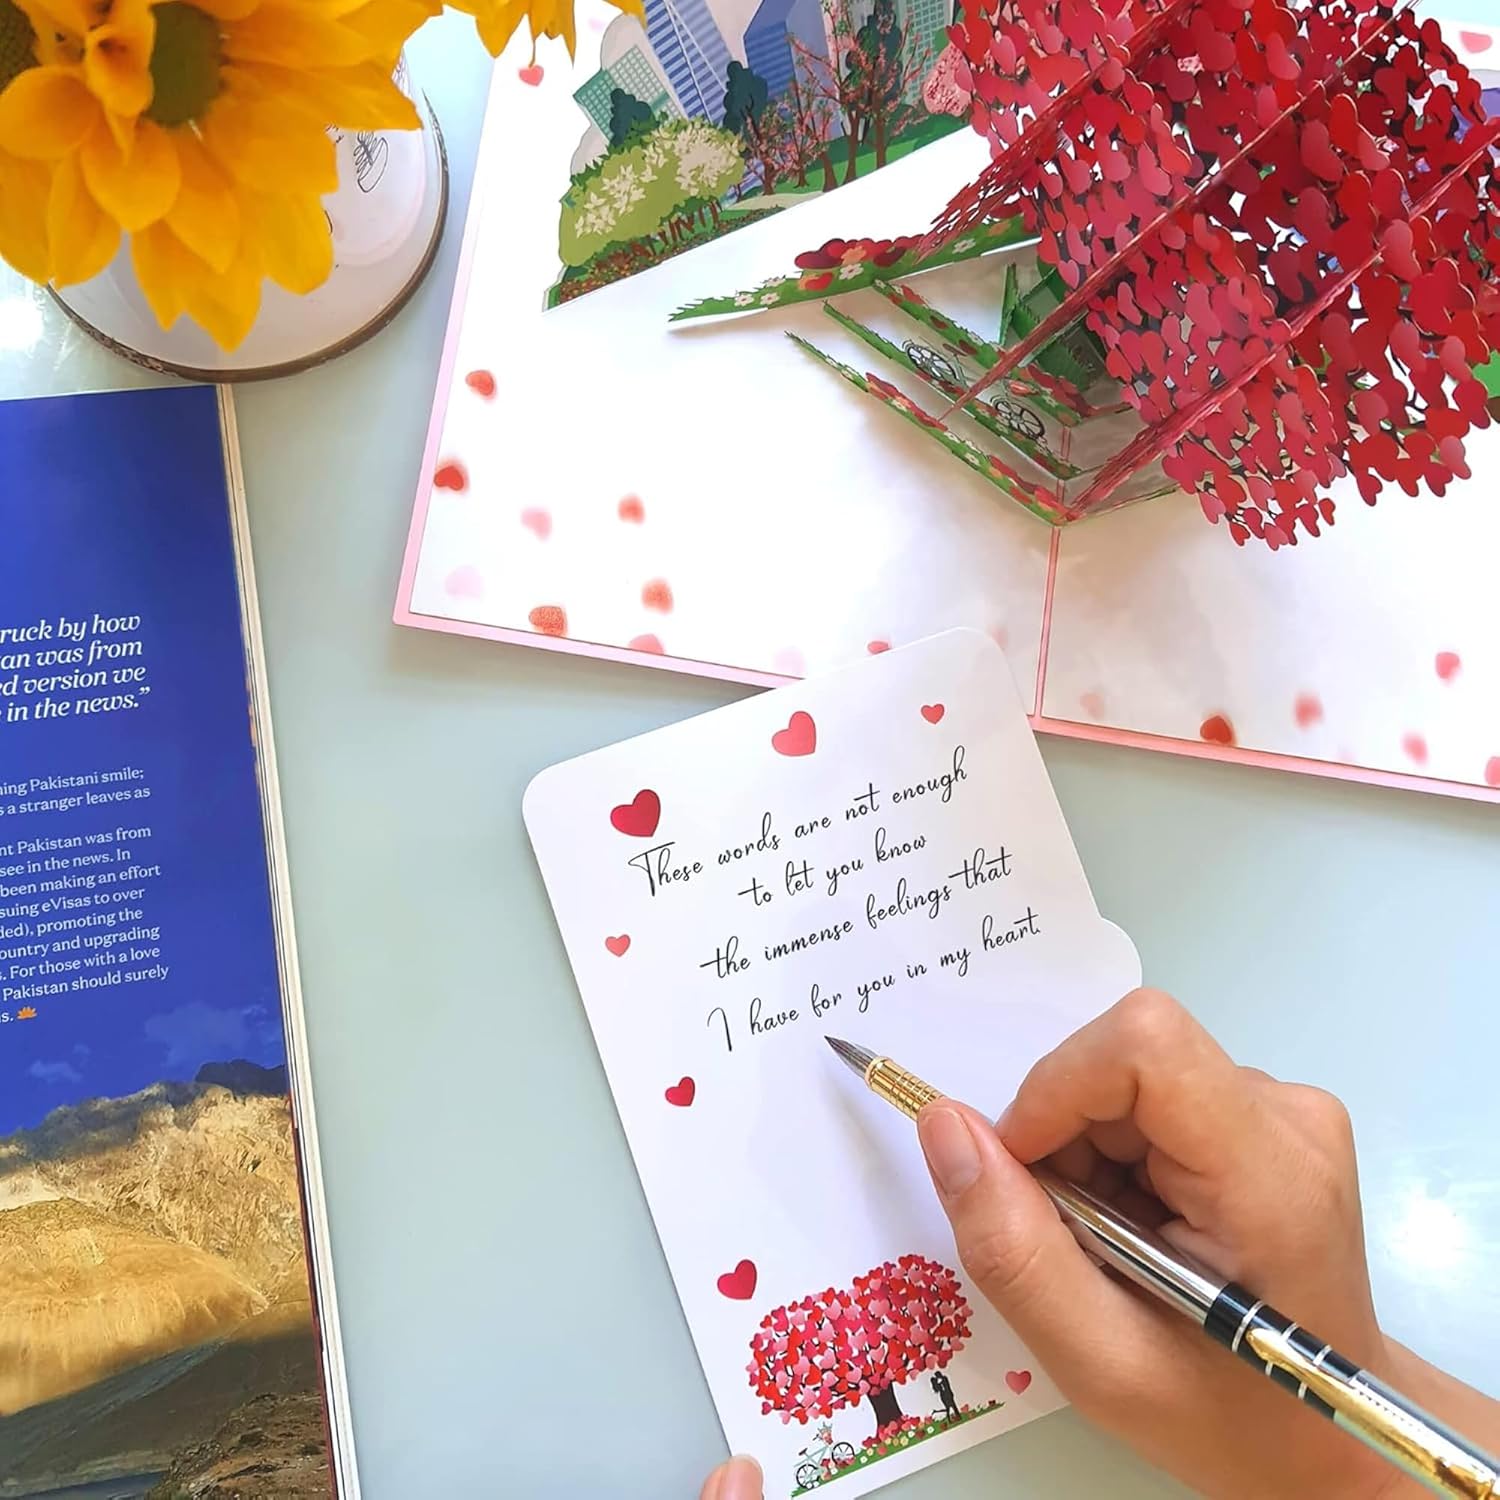 ruck by how
an was from
ed version we
in the news.”
ning Pakistani smile;
s a stranger leaves as
nt Pakistan was from
see in the news. In
been making an effort
suing eVisas to over
ded), promoting the
ountry and upgrading
s. For those with a love
Pakistan should surely
s.
These words are not enough
to let you know
the immense feelings that
I have for you in my heart.